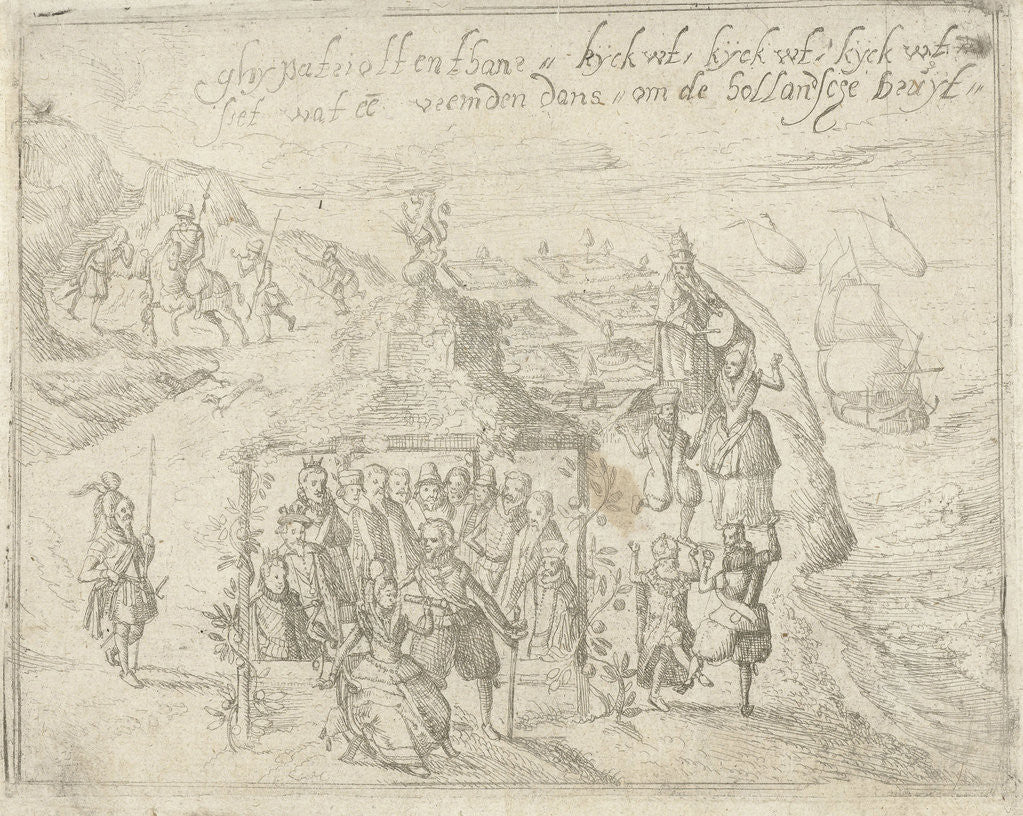 ghy patriotten thans „ kyck wt, kyck wt, kyck wt
siet wat eē vremden dans „ om de hollansche bruyt „